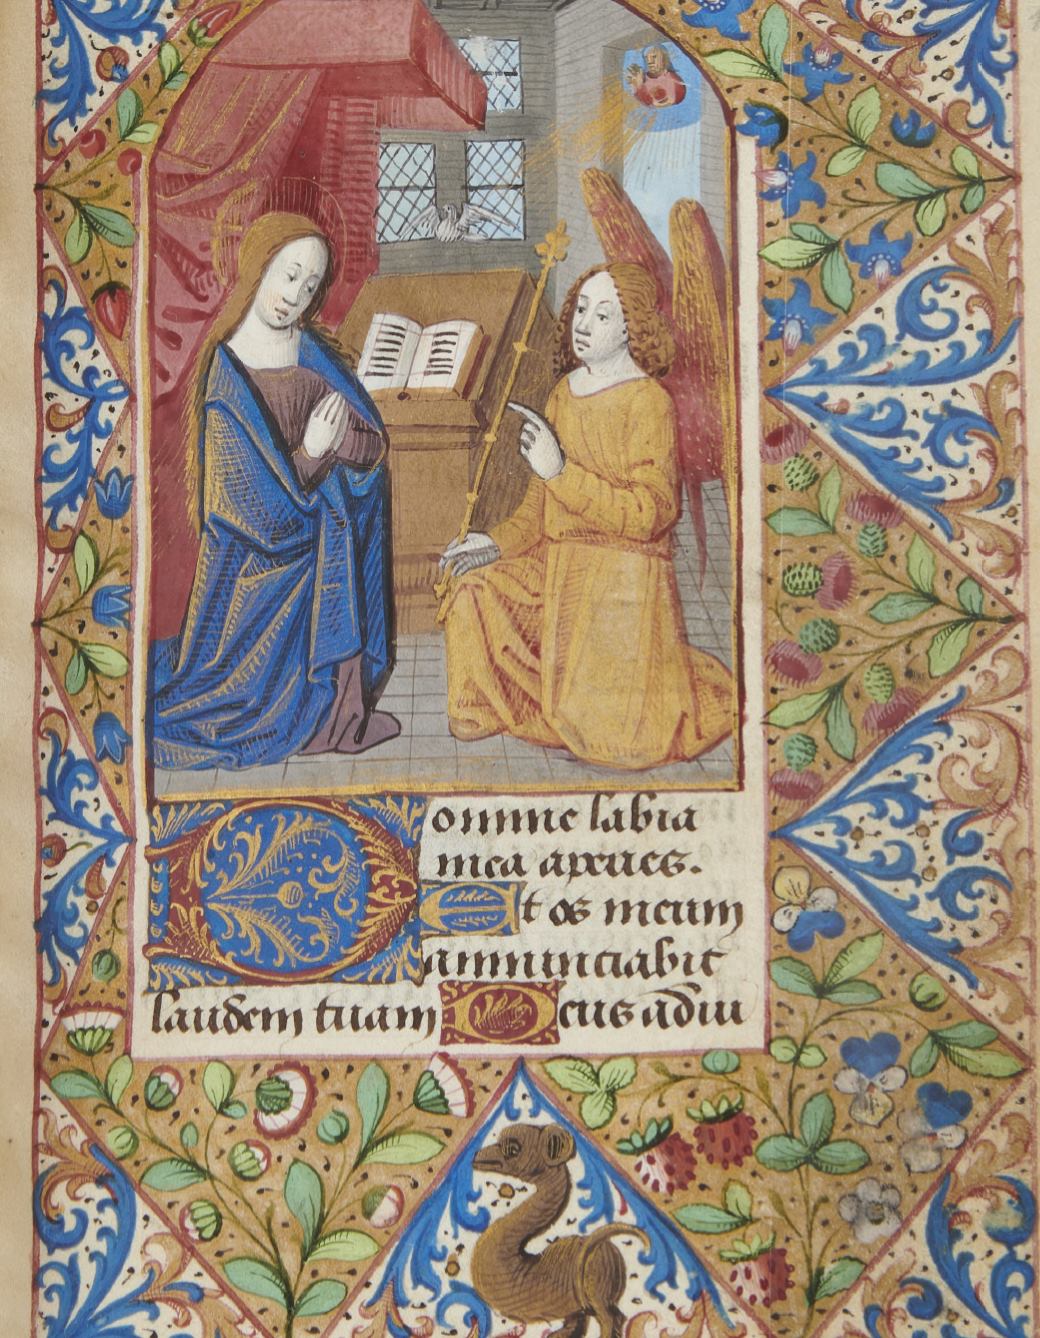 Domine labia
mea apries.
Et os meum
annunciabit
laudem tuam Deus adiu